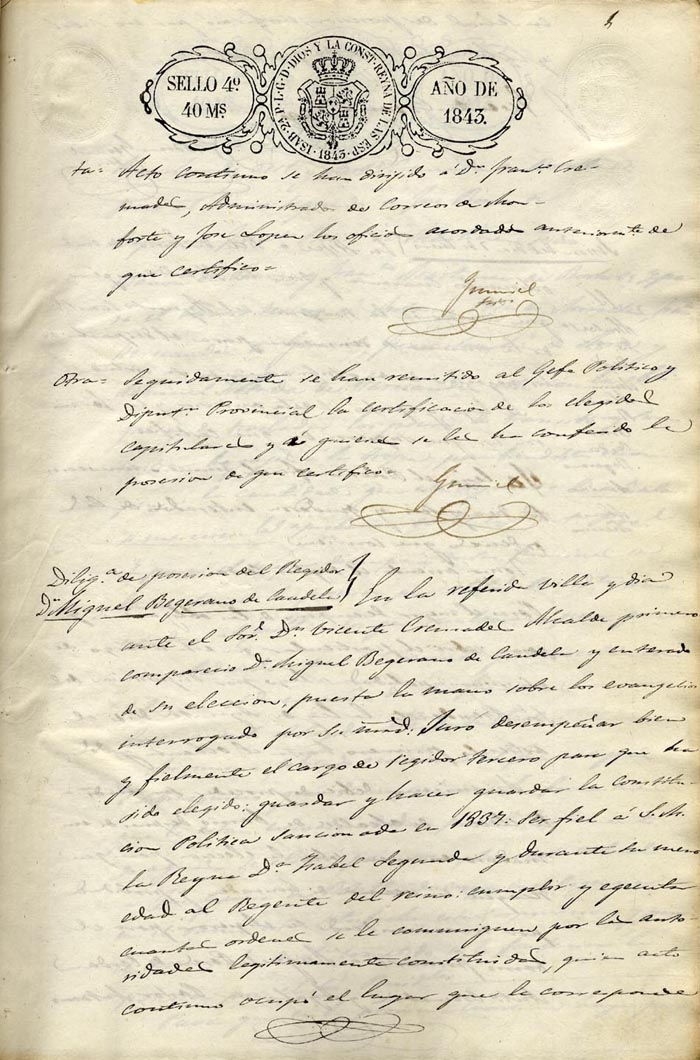 SELLO 4º
40 Ms
ISAB. 2ª P. L. G. D. DIOS Y LA CONST. REYNA DE LAS ESP.
1843
AÑO DE
1843.
ta= Acto continuo se han dirigido á Dn. Franco. Cre-
mades, Administrador de Correos de Mon-
forte y Jose Lopez los oficios acordados anteriormte. de
que certifico=
Otra= Seguidamente se han remitido al Gefe Politico y
Diputn. Provincial la certificacion de los elegidos
capitulares y a quienes se les ha conferido la
posesion de que certifico=
Diliga. de posesion del Regidor
Dn. Miguel Begerano de Candela
En la referida villa y dia
ante el Sor. Dn. Vicente Cremades Alcalde primero
comparecio Dn. Miguel Begerano de Candela y enterado
de su eleccion, puesta la mano sobre los evangelios
interrogado por su mrd: Juro desempeñar bien
y fielmente el cargo de regidor tercero para que ha
sido elegido: guardar y hacer guardar la Constitu-
cion Politica sancionada en 1837: Ser fiel á S. M.
la Reyna Da. Isabel Segunda y durante su menor
edad al Regente del reino: cumplir y egecutar
cuantas ordenes se le comuniquen por las auto-
ridades legitimamente constituidas, quien acto
continuo ocupó el lugar que le corresponde